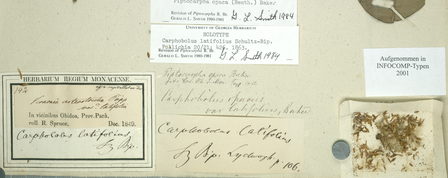 Piptocarpha opaca (Benth.) Baker
Revision of Piptocarpha R. Br.
Gerald L. Smith 1980-1981 G. L. Smith 1984
University of Georgia Herbarium
HOLOTYPE
Carphobolus latifolius Schultz-Bip.
Pollichia 20/21: 426. 1863.
Revision of Piptocarpha R. Br.
Gerald L. Smith 1980-1981 G. L. Smith 1984
HERBARIUM REGIUM MONACENSE.
In vicinibus Obidos, Prov. Pará,
coll. R. Spruce, Dec. 1849.
Carphobolus latifolius
Sz Bip.
Piptocarpha opaca Baker
Carphobolus opacus
var. latifolius, Baker
Carphobolus latifolius
Sz Bip. p. 106.
Aufgenommen in
INFOCOMP-Typen
2001